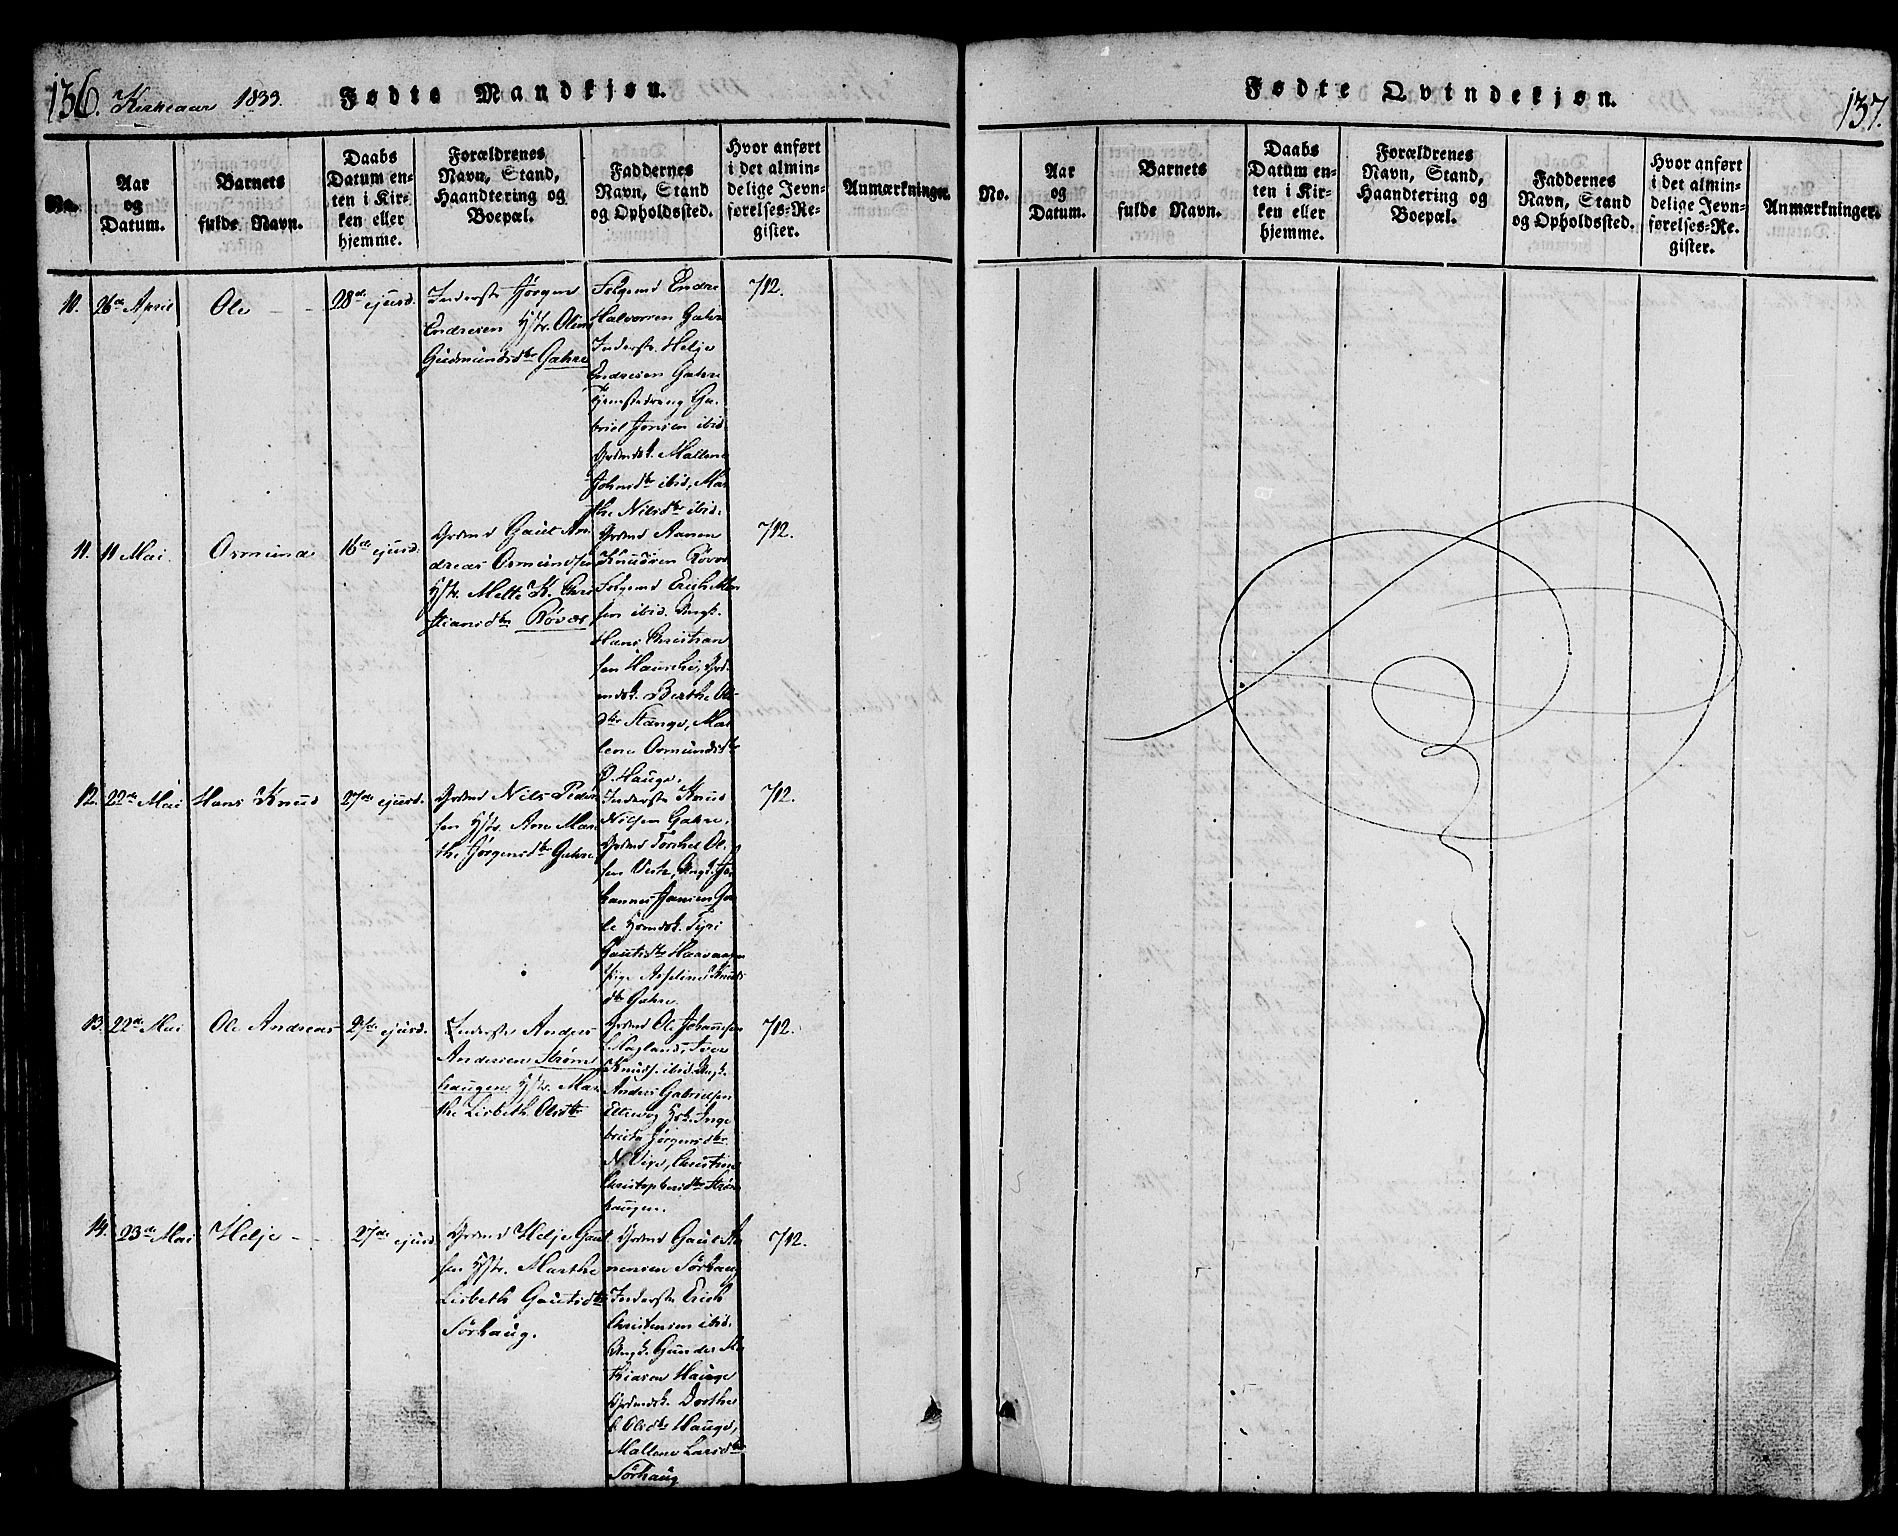 136. Kirkeaar 1833. Fødte Mandkjøn.
No.
Aar
og
Datum.
Barnets
fulde Navn.
Daabs
Datum en-
ten i Kir-
ken eller
hjemme.
Forældrenes
Navn, Stand,
Haandtering og
Boepæl.
Faddernes
Navn, Stand
og Opholdssted.
Hvor anført
i det almin-
delige Jevn-
førelses-Re-
gister.
Anmærkninger.
10. 26de April
Ole
28de ejusd.
Inderste Jørgen
Endresen Hstr. Olene
Gudmundsdtr Gahre
Folgemd Endre
Halvorsen Gahre
Inderste. Helje
Endresen Gahre
Tjenestedreng Ga-
briel Jonsen ibid.
Grdmdsk. Mallene
Johnsdtr ibid, Mar-
the Nilsdtr ibid.
712.
11. 11 Mai.
Osmund
16de ejusd.
Grdmd Gaut An-
dreas Osmundsen
Hstr. Mette K. Chri-
stiansdtr Røvær
Grdmd Aanen
Knudsen Røvær
Folgemd Erich
sen ibid. Ungk.
Hans Christian-
sen Hauske, Grd-
mdsk. Berthe Ols-
dtr Stange, Mal-
lene Osmundsdtr
Ø. Hauge.
712.
12. 22de Mai
Hans Knud
27de ejusd.
Grdmd Nils Peder-
sen Hstr. Ane Mar-
the Jørgensdtr Gahre
Inderste Knud
Nilsen Gahre,
Grdmd Torchel Ol-
sen Vestre, Ungk. Jo-
hannes Jansen
Tyri
Gautsdtr Haavaagen
Pige Asseline Knuds-
dtr Gahre.
712.
13. 22de Mai
Ole Andreas
27de ejusd.
Inderste Anders
Andersen Strøm-
haugen, Hstr. Mar-
the Lisbeth Olsdtr
Grdmd Ole Johannesen
Hagland, Iver
Knuds. ibid. Ungk.
Anders Gabrielsen
Inge-
Jørgensdtr.
N. Vige, Christine
Christophersdtr Strøm-
haugen.
712.
14. 23de Mai
Helje
27de ejusd.
Grdmd Helje Gaut-
sen Hstr. Marthe
Lisbeth Gautsdtr
Sørhaug.
Grdmd Gaut Aa-
nensen Sørhaug
Inderste Erich
Christensen ibid.
Ungk. Gunder Ma-
thiasen Hauge
Grdmdsk. Dorthe
Olsdtr Hauge,
Mallene Larsdtr
Sørhaug
712.
Fødte Qvindekjøn. 137.
No.
Aar
og
Datum.
Barnets
fulde Navn.
Daabs
Datum en-
ten i Kir-
ken eller
hjemme.
Forældrenes
Navn, Stand,
Haandtering og
Boepæl.
Faddernes
Navn, Stand
og Opholdssted.
Hvor anført
i det almin-
delige Jevn-
førelses-Re-
gister.
Anmærkninger.